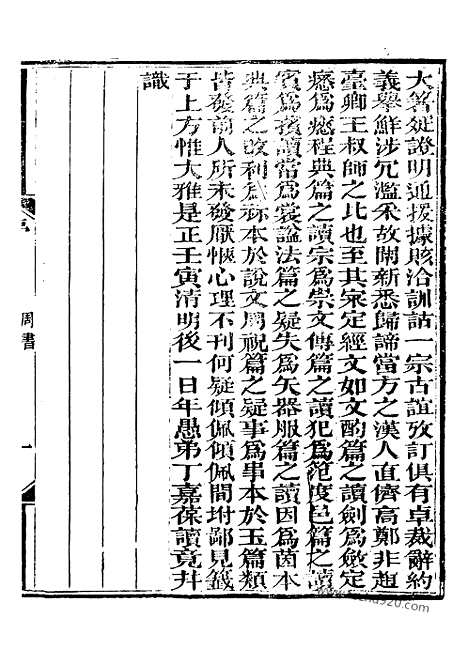 大箸疑證明通援據賅洽訓詁一宗古誼攷訂俱有卓裁辭約
義舉鮮涉冗濫釆故闡新悉歸諦當方之漢人直儕高鄭非趙
臺卿王叔師之比也至其寀定經文如文酌篇之讀劍爲斂定
爲程典篇之讀宗爲崇文傳篇之讀犯爲范度邑篇之讀
賓爲賓讀常爲裳諡法篇之疑失爲矢器服篇之讀因爲茵本
典篇之改利爲祢本於說文周祝篇之疑事爲事本於玉篇類
皆發前人所未發厭惬心理不刊何疑傾佩傾佩間坿鄙見籤
于上方惟大雅是正壬寅清明後一日年愚弟丁嘉葆讀竟幷
識
周書
一